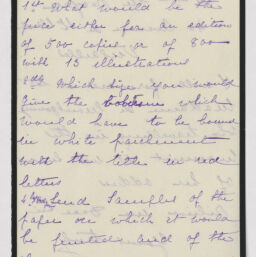 1st What would be the
price either for an edition
of 500 copies or of 800
with 13 illustrations
which size you would
give the which
would have to be bound
in white parchment
with the title in red
letters
Send Samples of the
paper on which it would
be printed and of the